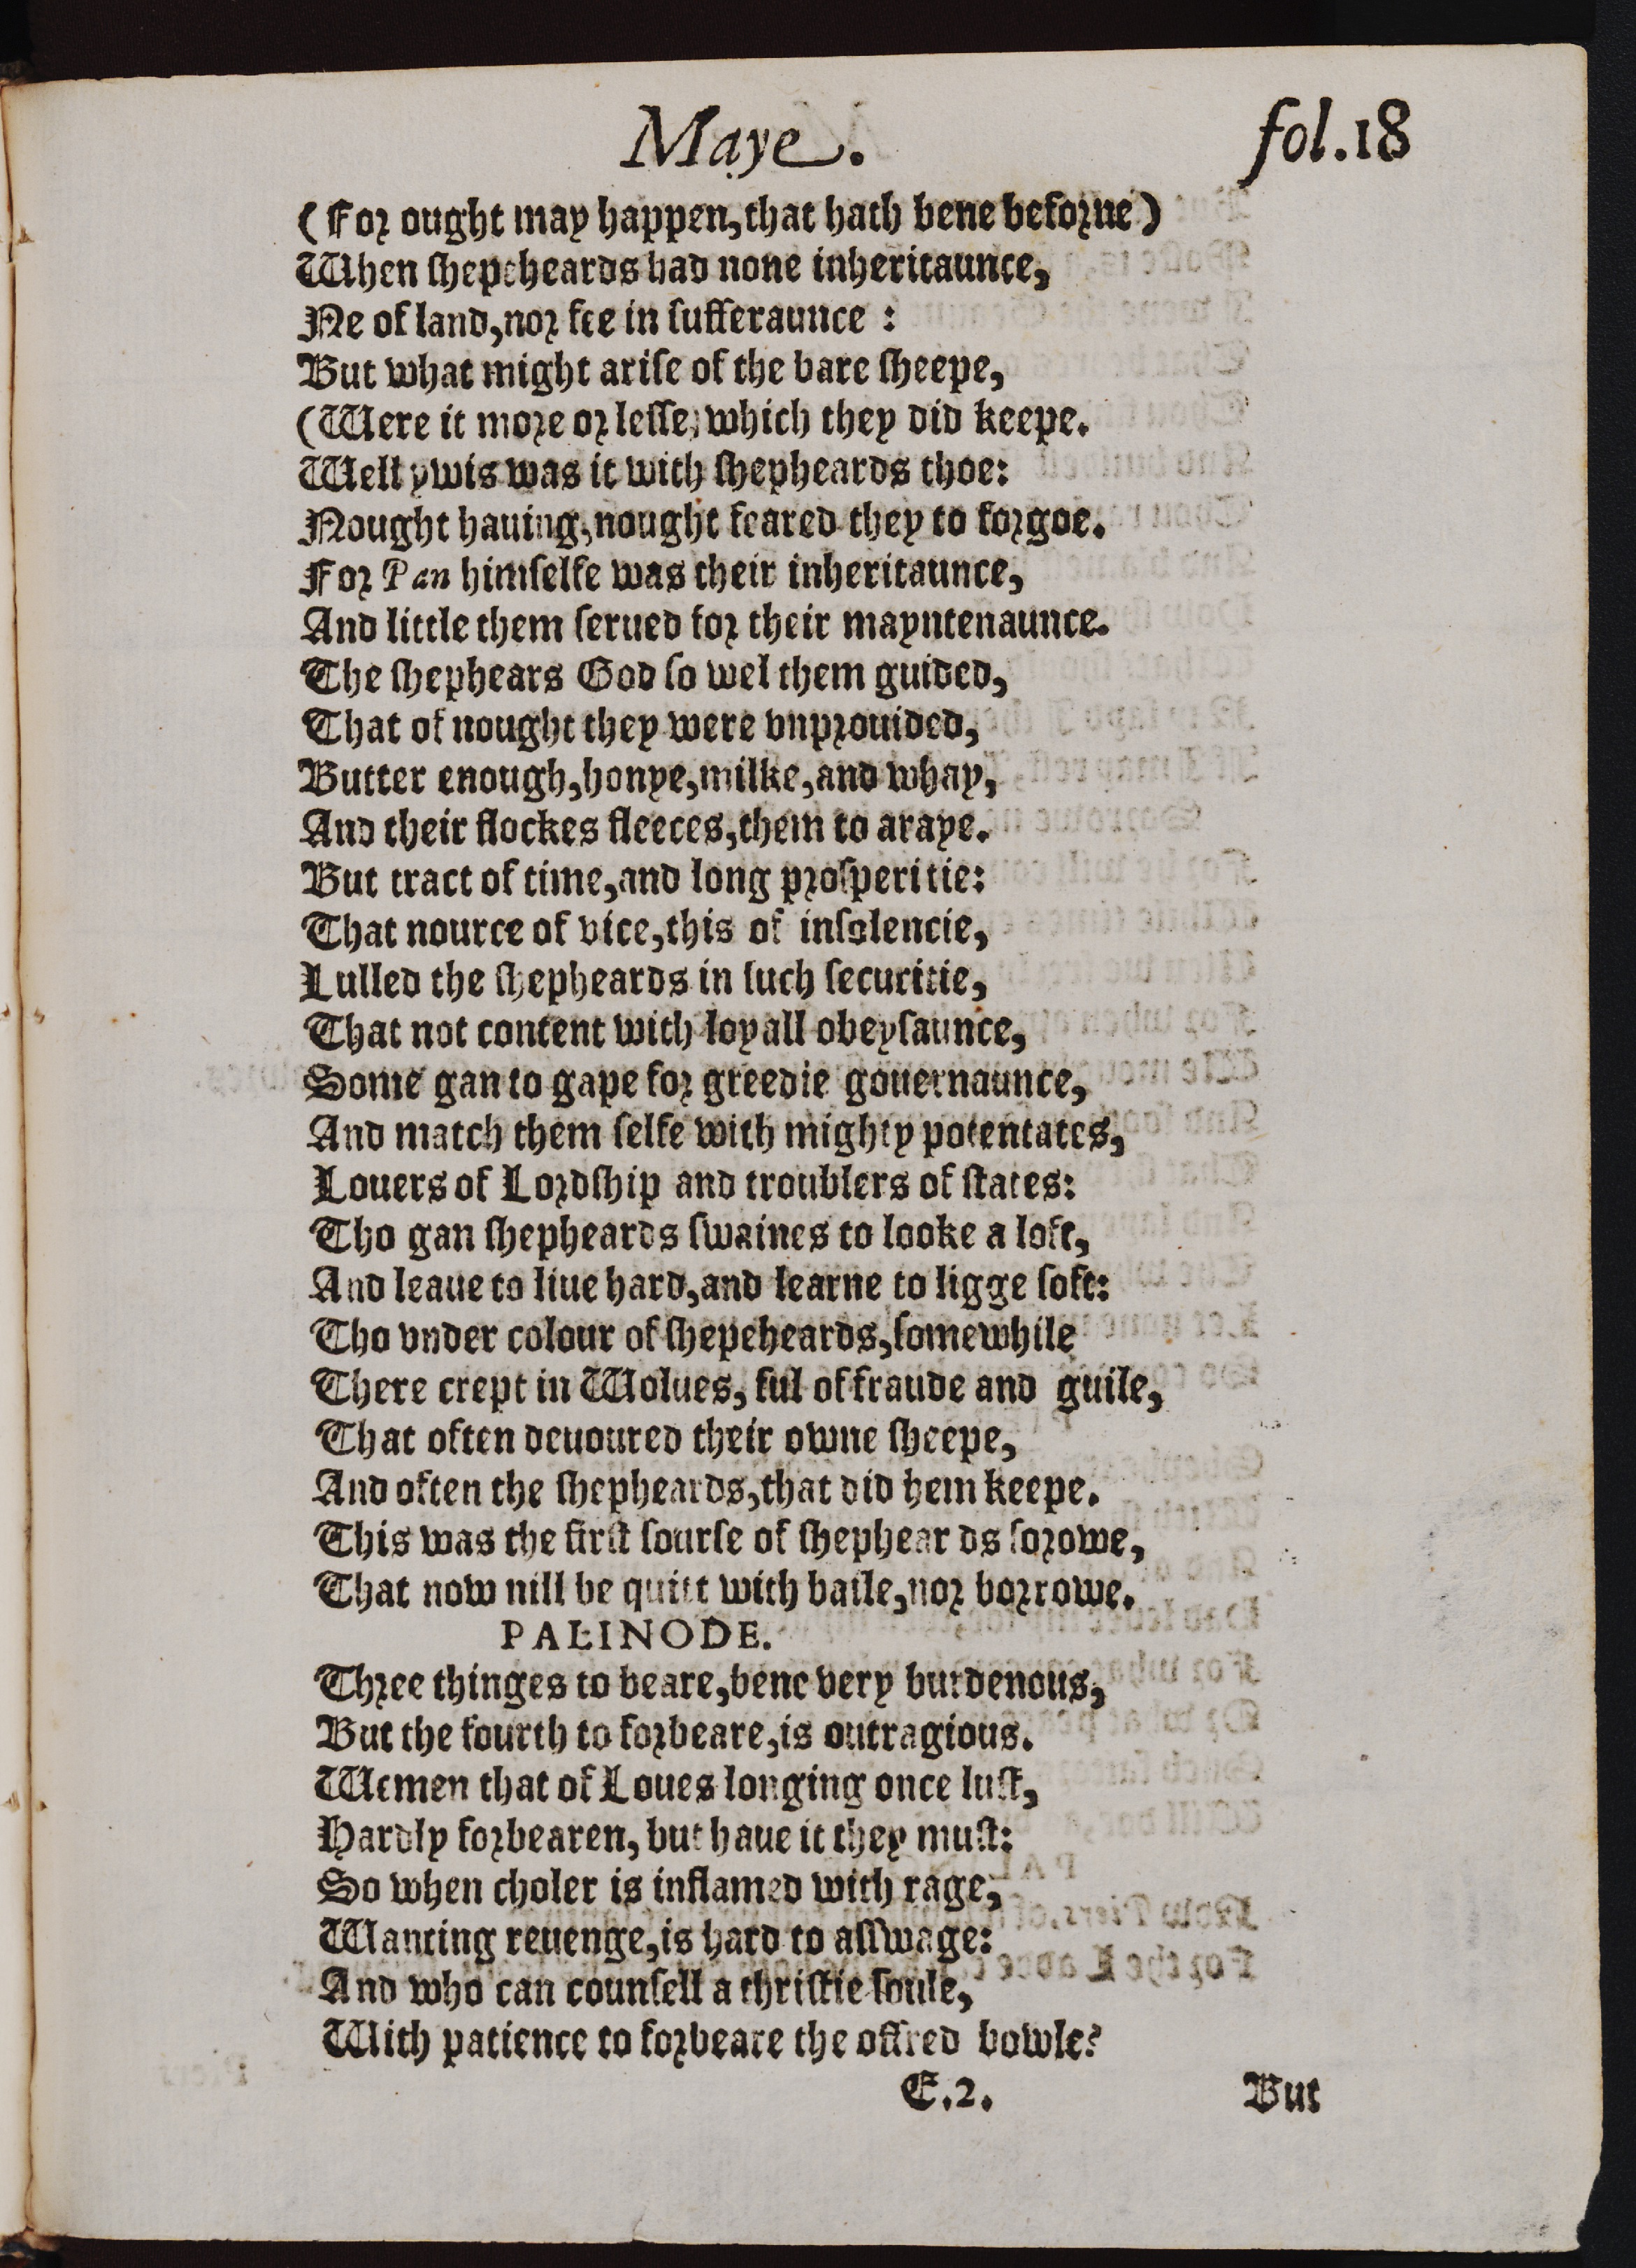 Maye. fol.18
(For ought may happen, that hath bene beforne)
When ſhepeheards had none inheritaunce,
Ne of land, nor fee in ſufferaunce :
But what might ariſe of the bare ſheepe,
(Were it more or leſſe; which they did keepe.
Well ywis was it with ſhepheards thoe:
Nought hauing, nought feared they to forgoe.
For Pan himſelfe was their inheritaunce,
And little them ſerued for their mayntenaunce.
The ſhephears God ſo wel them guided,
That of nought they were vnprouided,
Butter enough, honye, milke, and whay,
And their flockes fleeces, them to araye.
But tract of time, and long proſperitie:
That nource of vice, this of inſolencie,
Lulled the ſhepheards in ſuch ſecuritie,
That not content with loyall obeyſaunce,
Some gan to gape for greedie gouernaunce,
And match them ſelfe with mighty potentates,
Louers of Lordſhip and troublers of ſtates:
Tho gan ſhepheards ſwaines to looke a loft,
And leaue to liue hard, and learne to ligge ſoft:
Tho vnder colour of ſhepeheards, ſomewhile
There crept in Wolues, ful of fraude and guile,
That often deuoured their owne ſheepe,
And often the ſhepheards, that did hem keepe.
This was the firſt ſourſe of ſhephear ds ſorowe,
That now nill be quitt with baile, nor borrowe.
PALINODE.
Three thinges to beare, bene very burdenous,
But the fourth to forbeare, is outragious.
Wemen that of Loues longing once luſt,
Hardly forbearen, but haue it they muſt:
So when choler is inflamed with rage,
Wanting reuenge, is hard to aſſwage:
And who can counſell a thriſtie ſoule,
With patience to forbeare the offred bowle?
E.2. But